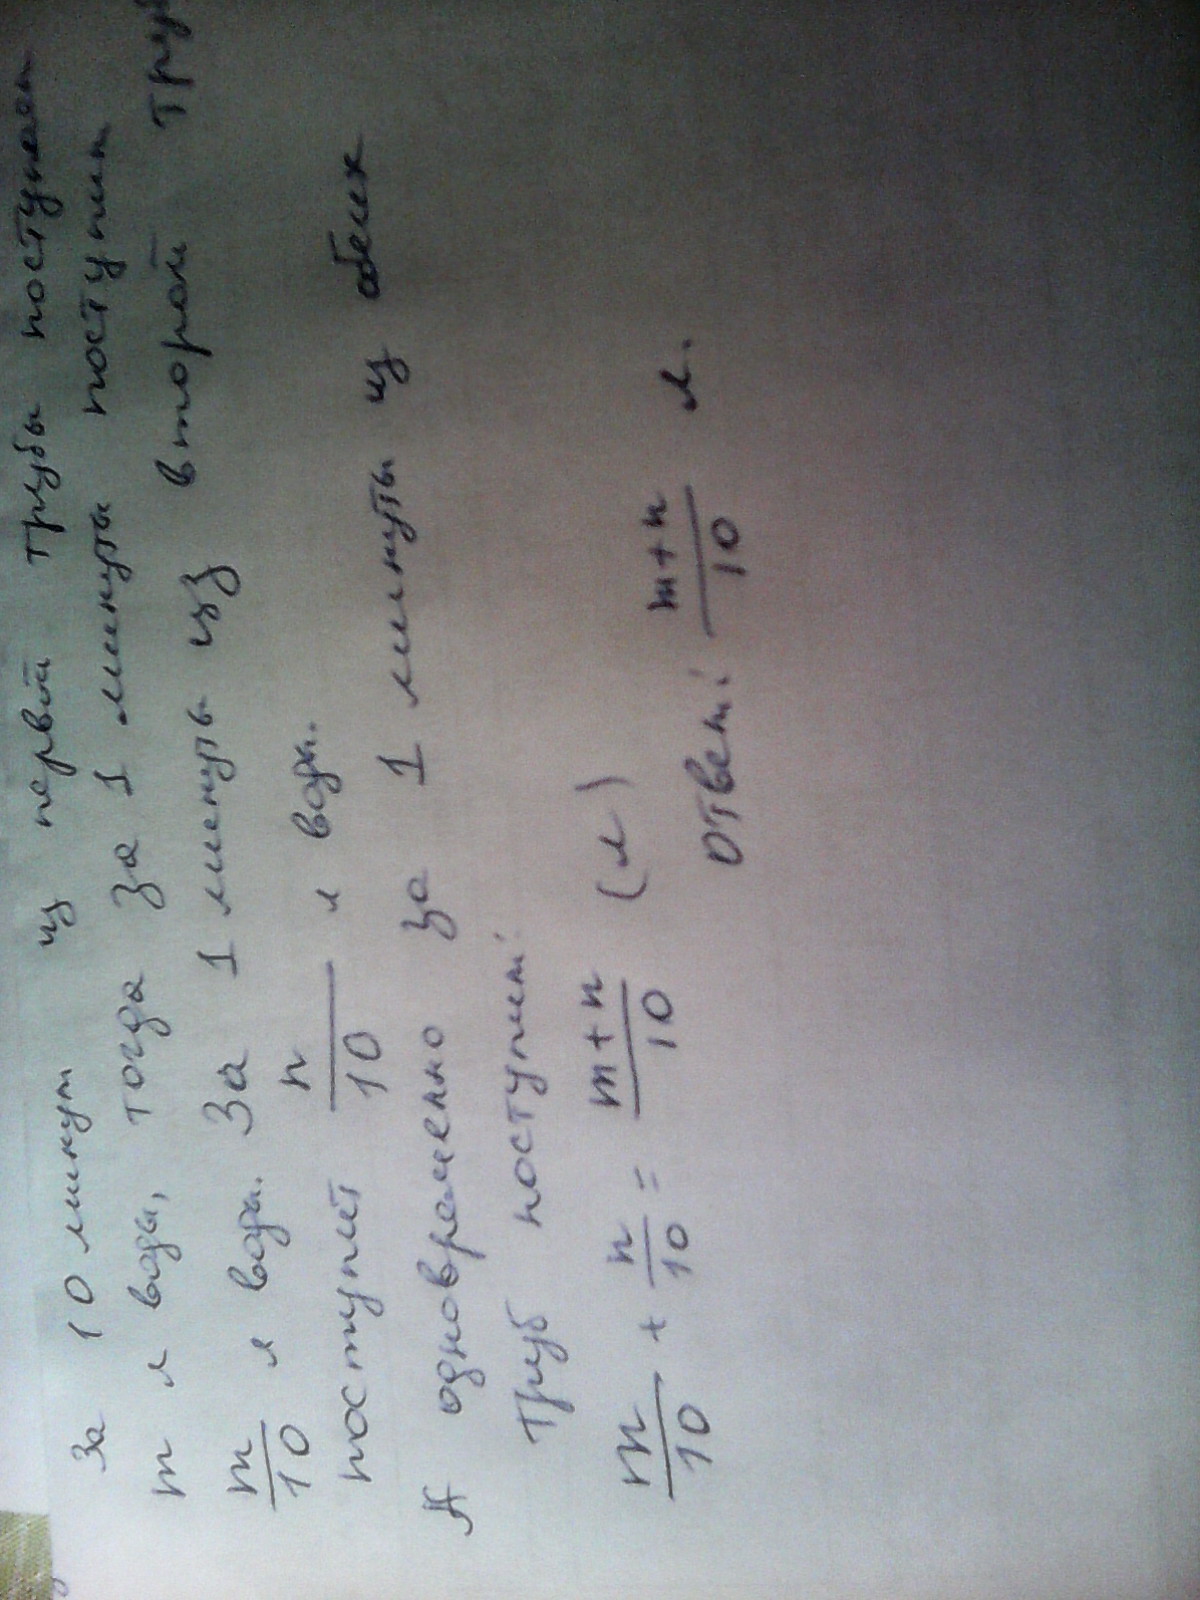 За 10 минут из первой трубы поступает
m л воды, тогда за 1 минуты поступит
m/10 л воды. За 1 минуты из второй тру
поступит n/10 л воды.
А одновременно за 1 минуты из обеих
труб поступит:
m/10 + n/10 = m+n/10 (л)
Ответ: m+n/10 л.